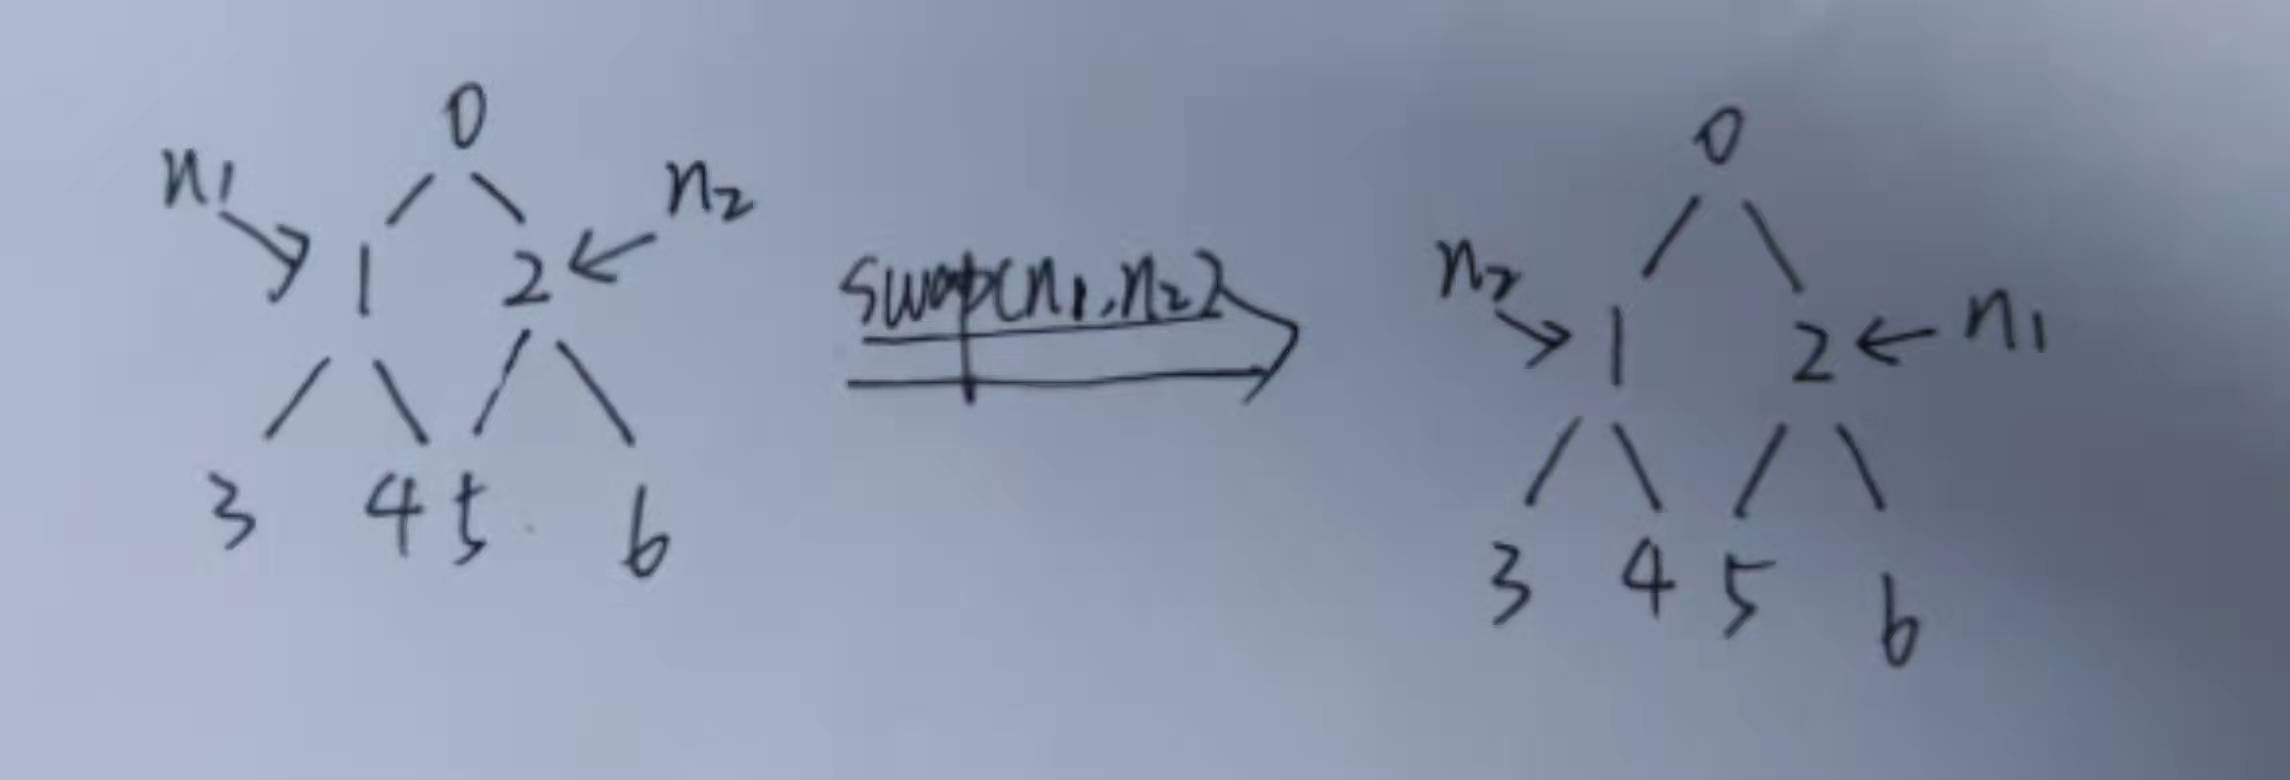 0
n1 1 2 n2
3 4 5 6
swap(n1,n2)
0
n2 1 2 n1
3 4 5 6